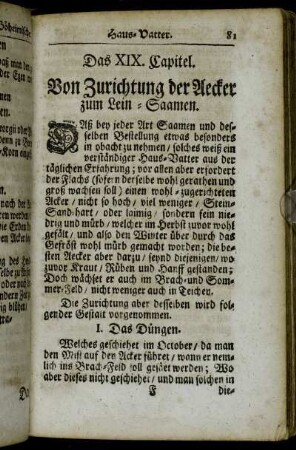 Haus-Vatter. 81
Das XIX. Capitel.
Von Zurichtung der Aecker
zum Lein-Saamen.
DAß bey jeder Art Saamen und des-
selben Bestellung etwas besonders
in obacht zu nehmen / solches weiß ein
verständiger Haus-Vatter aus der
täglichen Erfahrung; vor allen aber erfordert
der Flachs (sofern derselbe wohl gerathen und
groß wachsen soll) einen wohl-zugerichteten
Acker / nicht so hoch / viel weniger / Stein-
Sand-hart / oder laimig / sondern fein nie-
drig und mürb / welcher im Herbst zuvor wohl
gefält / und also den Winter über durch das
Gefröst wohl mürb gemacht worden; die be-
sten Aecker aber darzu / seynd diejenigen / wo
zuvor Kraut / Rüben und Hanff gestanden;
Doch wächset er auch im Brach-und Som-
mer-Feld / nicht weniger auch in Teichen.
Die Zurichtung aber desselben wird fol-
gender Gestalt vorgenommen.
I. Das Düngen.
Welches geschiehet im October / da man
den Mist auf den Acker führet / wann er nem-
lich ins Brach-Feld soll gesäet werden; Wo
aber dieses nicht geschiehet / und man solchen in
F die-